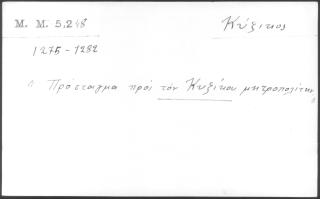 M. M. 5.248 Κύζικος
1275-1282
" Πρόσταγμα πρὸς τὸν Κυζίκου μητροπολίτην "